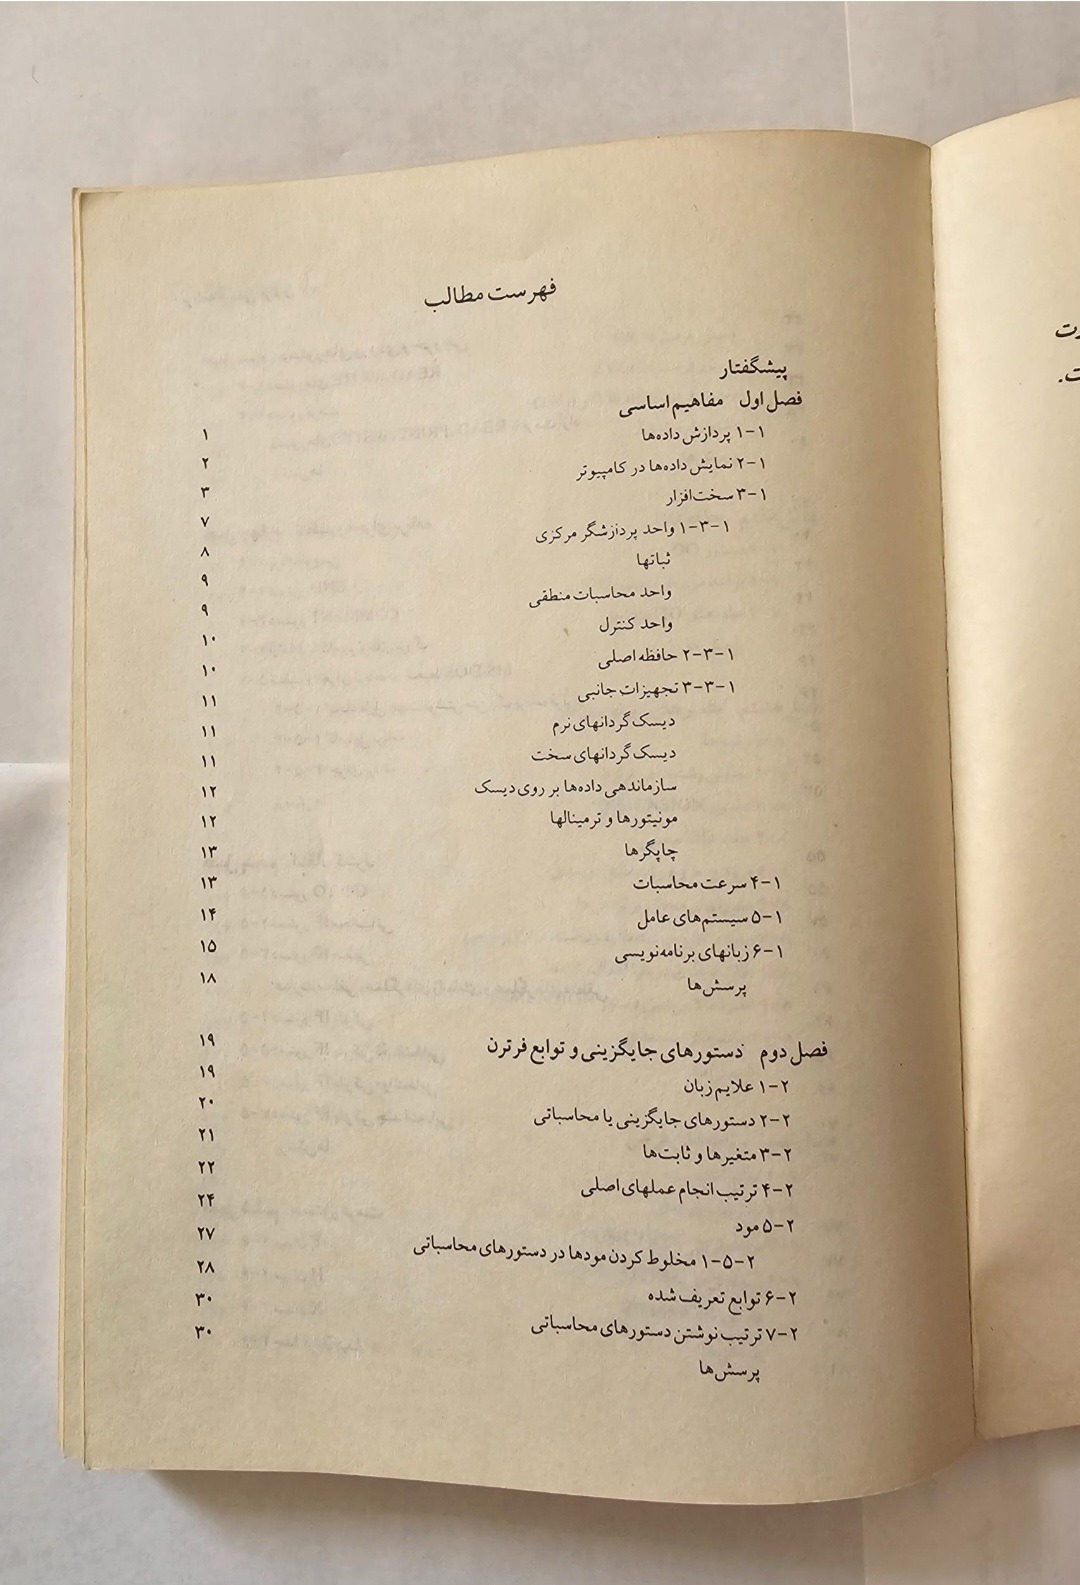 فهرست مطالب
پیشگفتار
فصل اول مفاهیم اساسی ۱
۱-۱ پردازش داده‌ها ۲
۲-۱ نمایش داده‌ها در کامپیوتر ۳
۳-۱ سخت‌افزار ۷
۱-۳-۱ واحد پردازشگر مرکزی ۸
ثباتها ۹
واحد محاسبات منطقی ۹
واحد کنترل ۱۰
۲-۳-۱ حافظه اصلی ۱۰
۳-۳-۱ تجهیزات جانبی ۱۱
دیسک گردانهای نرم ۱۱
دیسک گردانهای سخت ۱۱
سازماندهی داده‌ها بر روی دیسک ۱۲
مونیتورها و ترمینالها ۱۲
چاپگرها ۱۳
۴-۱ سرعت محاسبات ۱۳
۵-۱ سیستم‌های عامل ۱۴
۶-۱ زبانهای برنامه‌نویسی ۱۵
پرسش‌ها ۱۸
فصل دوم دستورهای جایگزینی و توابع فرترن ۱۹
۱-۲ علایم زبان ۱۹
۲-۲ دستورهای جایگزینی یا محاسباتی ۲۰
۳-۲ متغیرها و ثابت‌ها ۲۱
۴-۲ ترتیب انجام عملهای اصلی ۲۲
۵-۲ مود ۲۴
۱-۵-۲ مخلوط کردن مودها در دستورهای محاسباتی ۲۷
۶-۲ توابع تعریف شده ۲۸
۷-۲ ترتیب نوشتن دستورهای محاسباتی ۳۰
پرسش‌ها ۳۰